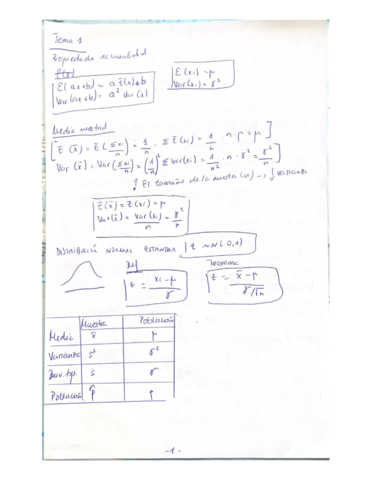 Tema 1
Propiedades de linealidad
E(x)
E(ax+b) = a E(x)+b
Var(ax+b) = a² Var(x)
E(xi) = μ
Var(xi) = σ²
Media muestral
[E(x̄) = E(Σxi/n) = 1/n · ΣE(xi) = 1/n · n · μ = μ]
Var(x̄) = Var(Σxi/n) = (1/n)² ΣVar(xi) = 1/n² · n · σ² = σ²/n]
↑ El tamaño de la muestra (n) → ↓ varianza
E(x̄) = E(xi) = μ
Var(x̄) = Var(xi)/n = σ²/n
DISTRIBUCIÓN NORMAL ESTANDAR | z ~ N(0,1)
Def
z = xi - μ / σ
Teorema
z = x̄ - μ / σ/√n
Muestra Población
Media x̄ μ
Varianza s² σ²
Desv. tip. s σ
Población p̂ p
-1-